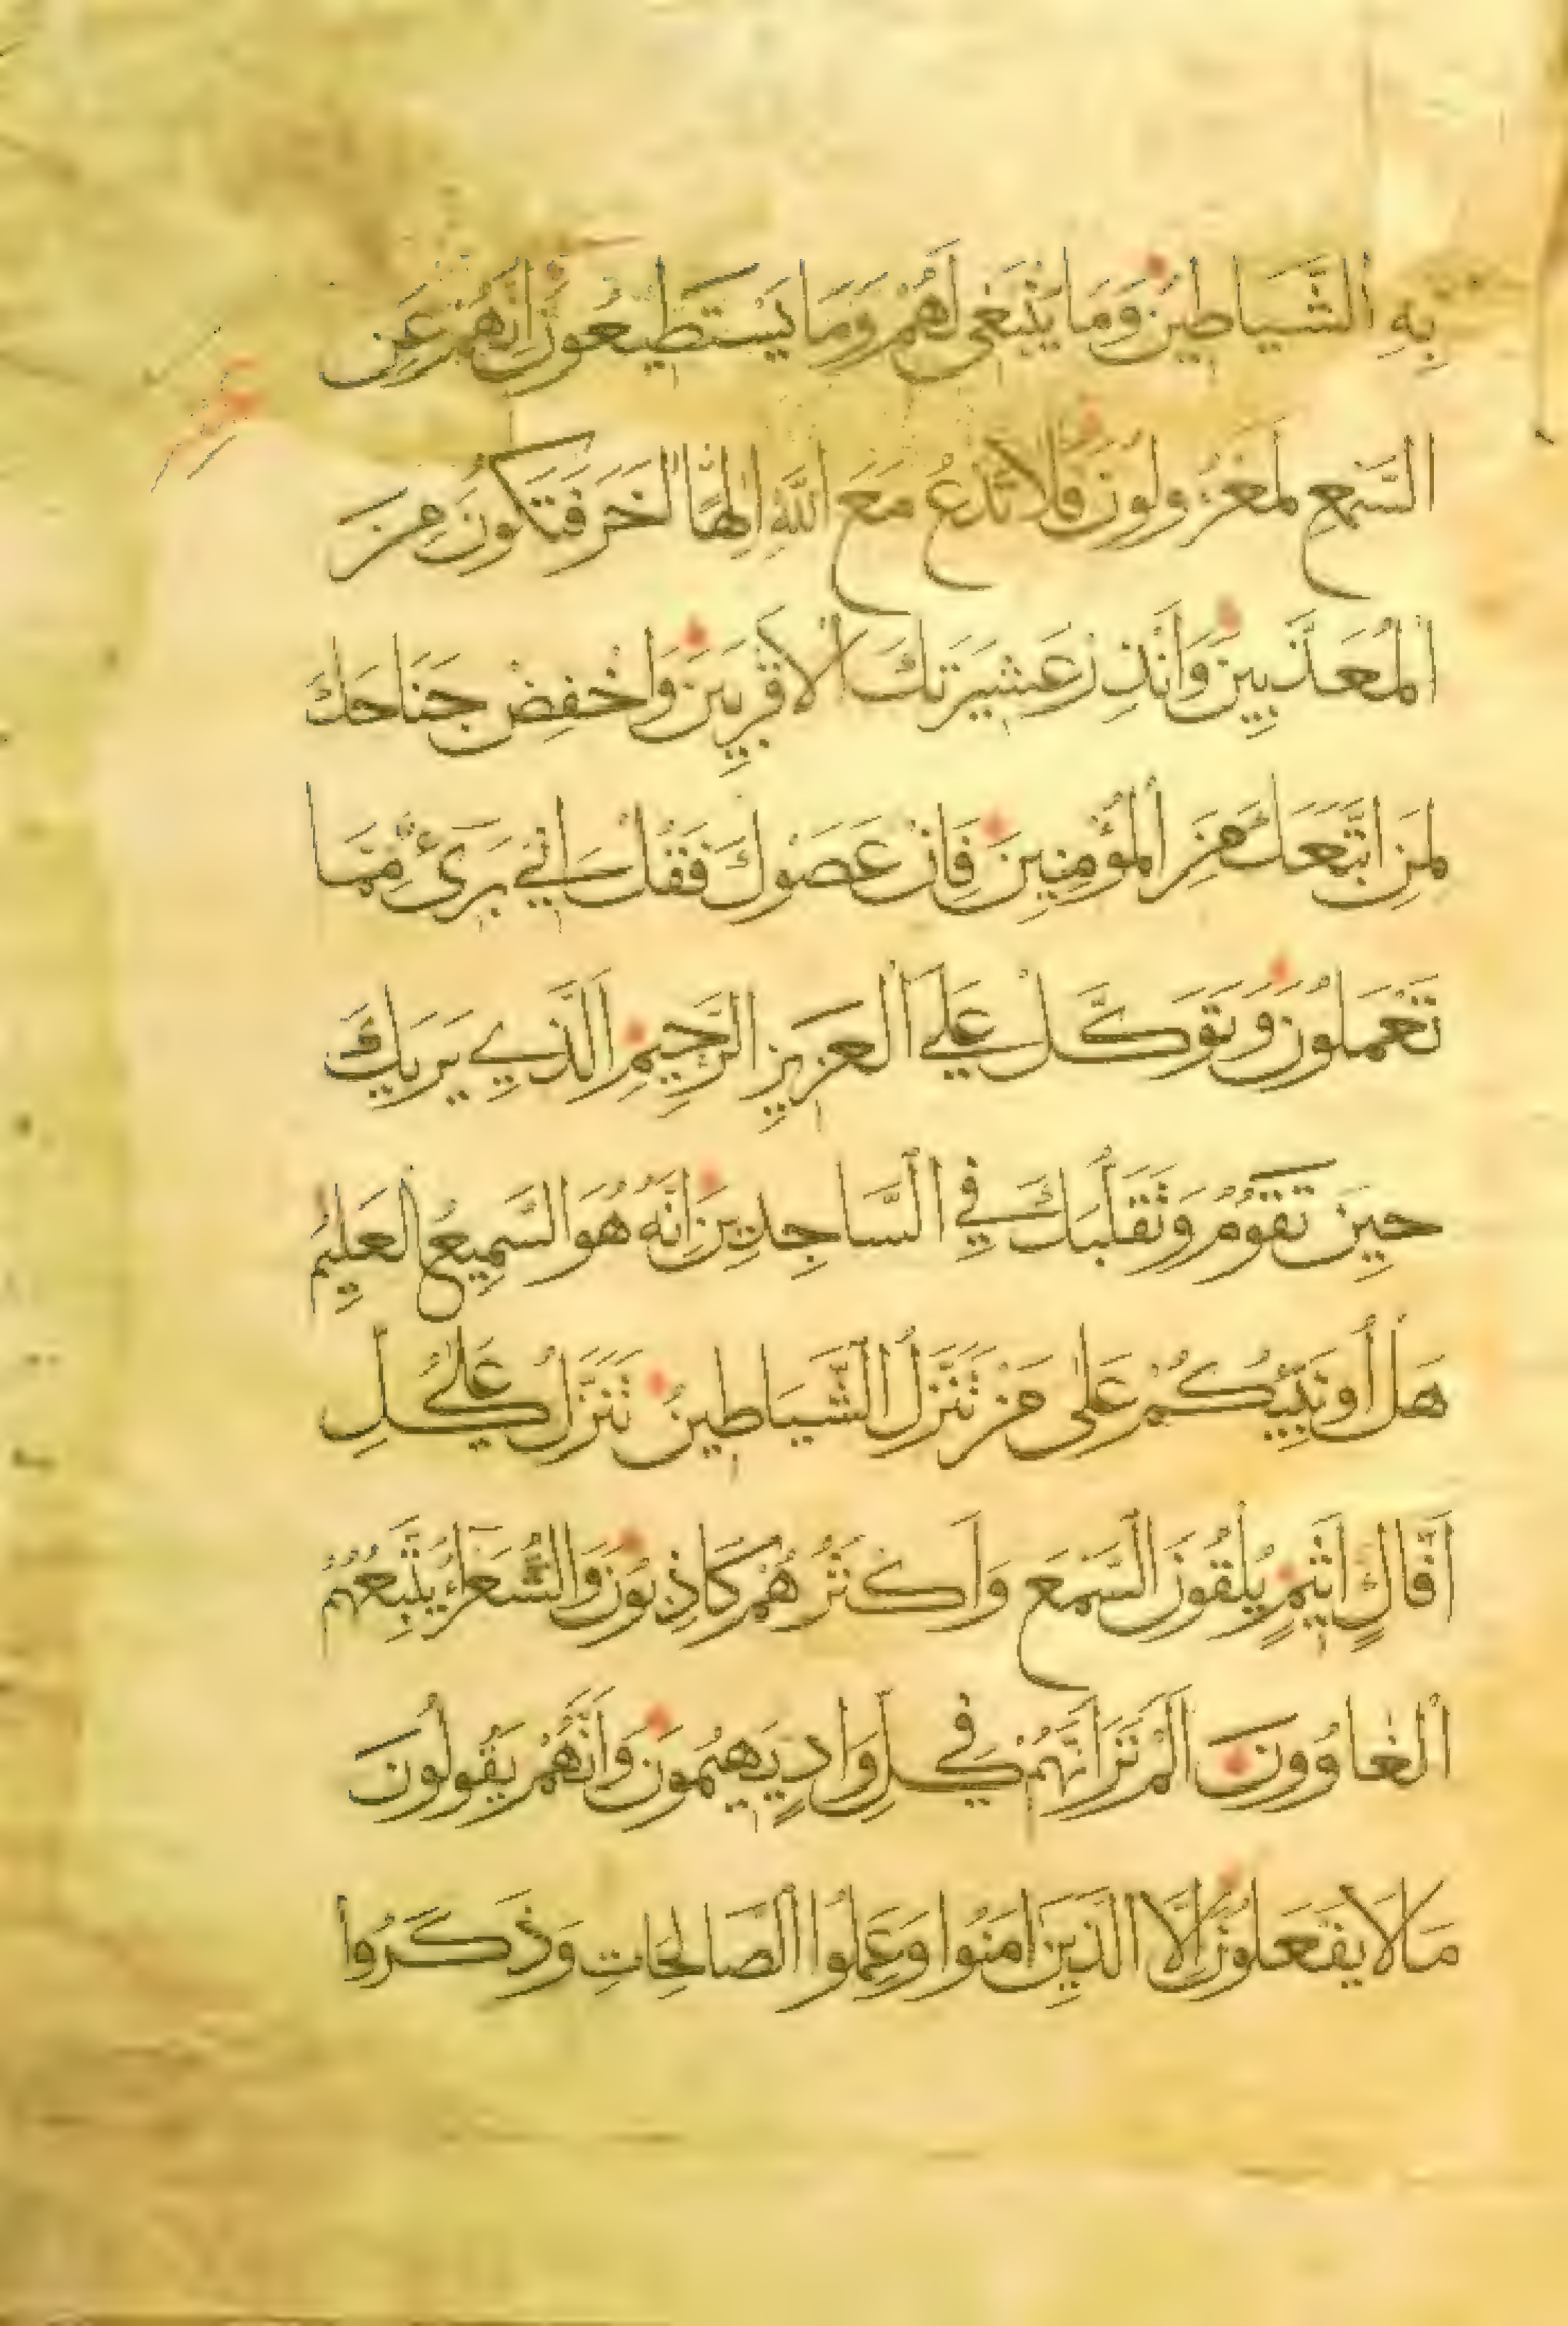 بِهِ الشَّيَاطِينُ وَمَا يَنْبَغِي لَهُمْ وَمَا يَسْتَطِيعُونَ اِنَّهُمْ عَنِ
السَّمْعِ لَمَعْزُولُونَ فَلَا تَدْعُ مَعَ اللَّهِ اِلٰهًا اٰخَرَ فَتَكُونَ مِنَ
الْمُعَذَّبِينَ وَاَنْذِرْ عَشِيرَتَكَ الْاَقْرَبِينَ وَاخْفِضْ جَنَاحَكَ
لِمَنِ اتَّبَعَكَ مِنَ الْمُؤْمِنِينَ فَاِنْ عَصَوْكَ فَقُلْ اِنِّي بَرِيءٌ مِمَّا
تَعْمَلُونَ وَتَوَكَّلْ عَلَى الْعَزِيزِ الرَّحِيمِ الَّذِي يَرَيكَ
حِينَ تَقُومُ وَتَقَلُّبَكَ فِي السَّاجِدِينَ اِنَّهُ هُوَ السَّمِيعُ الْعَلِيمُ
هَلْ اُونَبِّئُكُمْ عَلٰى مَنْ تَنَزَّلُ الشَّيَاطِينُ تَنَزَّلُ عَلٰى كُلِّ
اَفَّاكٍ اَثِيمٍ يُلْقُونَ السَّمْعَ وَاَكْثَرُهُمْ كَاذِبُونَ وَالشُّعَرَاءُ يَتَّبِعُهُمُ
الْغَاوُونَ اَلَمْ تَرَ اَنَّهُمْ فِي كُلِّ وَادٍ يَهِيمُونَ وَاَنَّهُمْ يَقُولُونَ
مَا لَا يَفْعَلُونَ اِلَّا الَّذِينَ اٰمَنُوا وَعَمِلُوا الصَّالِحَاتِ وَذَكَرُوا